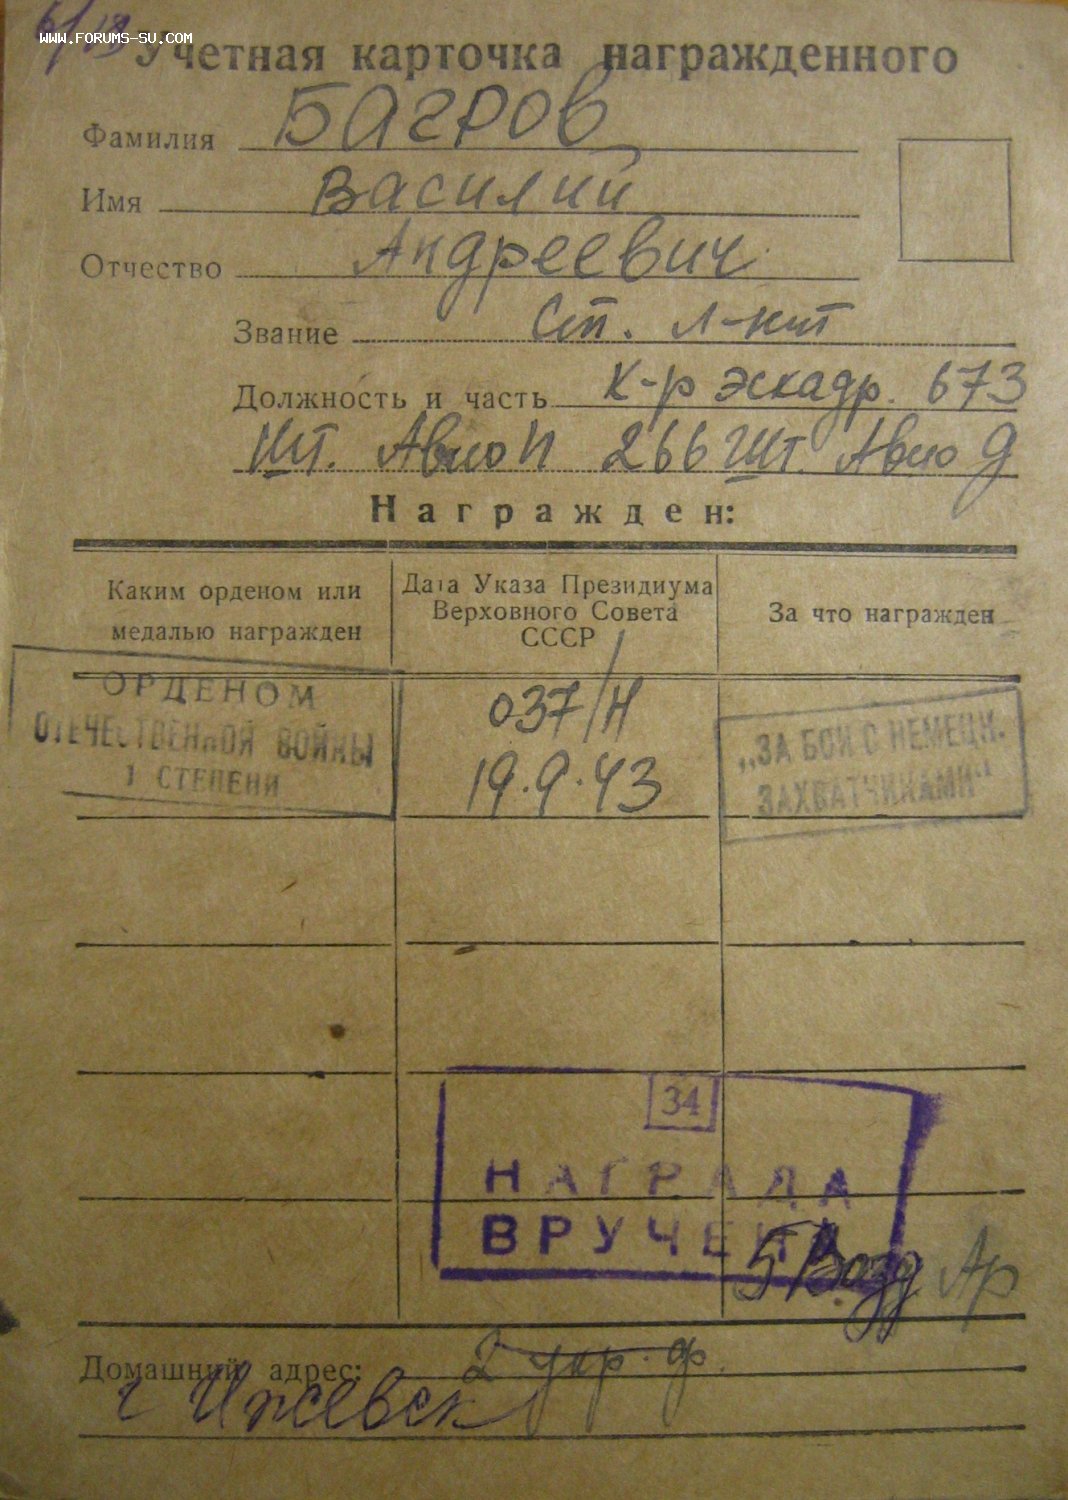 www.forums-su.com
Учетная карточка награжденного
Фамилия Багров
Имя Василий
Отчество Андреевич
Звание Ст. л-нт
Должность и часть К-р эскадр. 673
Шт. Авио П 266 Шт. Авио Д
Награжден:
Каким орденом или медалью награжден
Дата Указа Президиума Верховного Совета СССР
За что награжден
ОРДЕНОМ
ОТЕЧЕСТВЕННОЙ ВОЙНЫ
1 СТЕПЕНИ
037/н
19.9.43
„ЗА БОИ С НЕМЕЦК.
ЗАХВАТЧИКАМИ“
34
НАГРАДА
ВРУЧЕНА
5 Возд Ар
Домашний адрес: 2 укр. ф.
г Ижевск